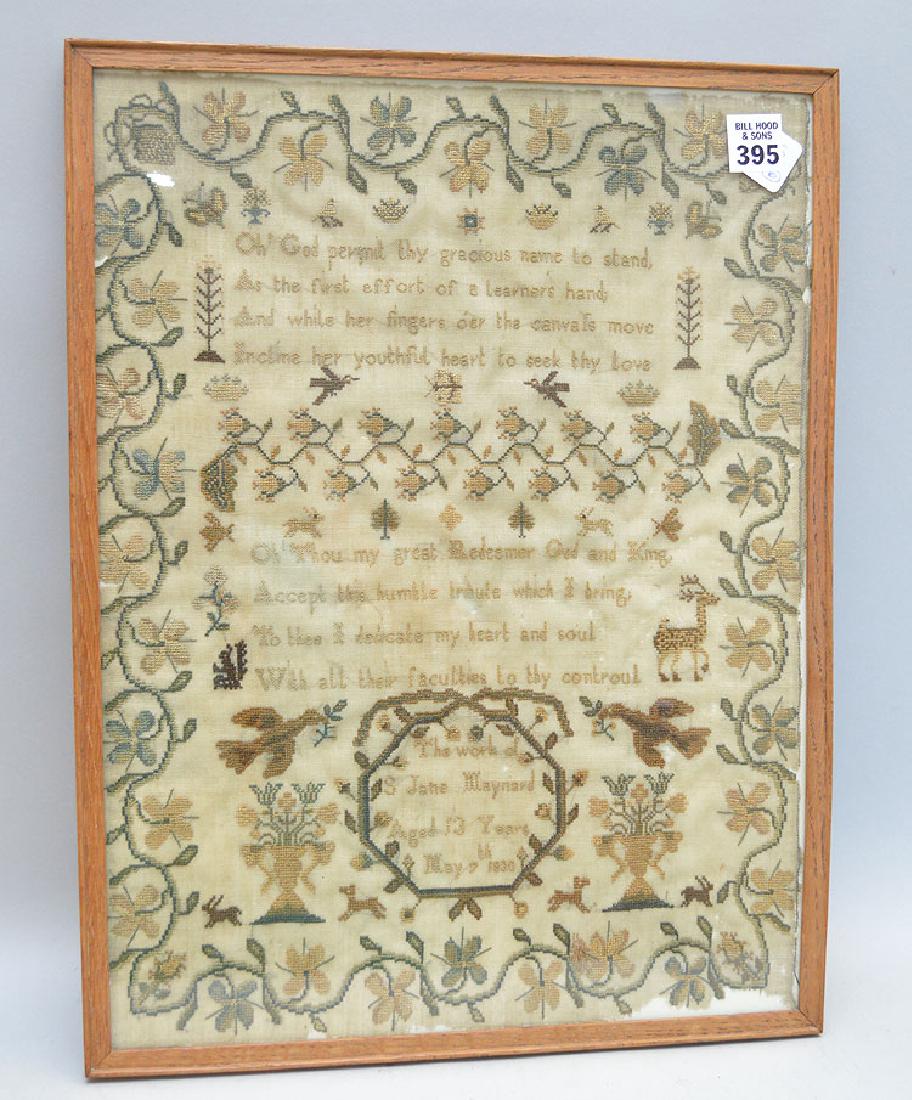 BILL HOOD
& SONS
395
Oh! God permit thy gracious name to stand,
As the first effort of a learners hand;
And while her fingers o'er the canvass move
Incline her youthful heart to seek thy love
Oh! Thou my great Redeemer God and King,
Accept this humble tribute which I bring,
To thee I dedicate my heart and soul
With all their faculties to thy controul
The work of
S Jane Maynard
Aged 13 Years
May 7th 1830